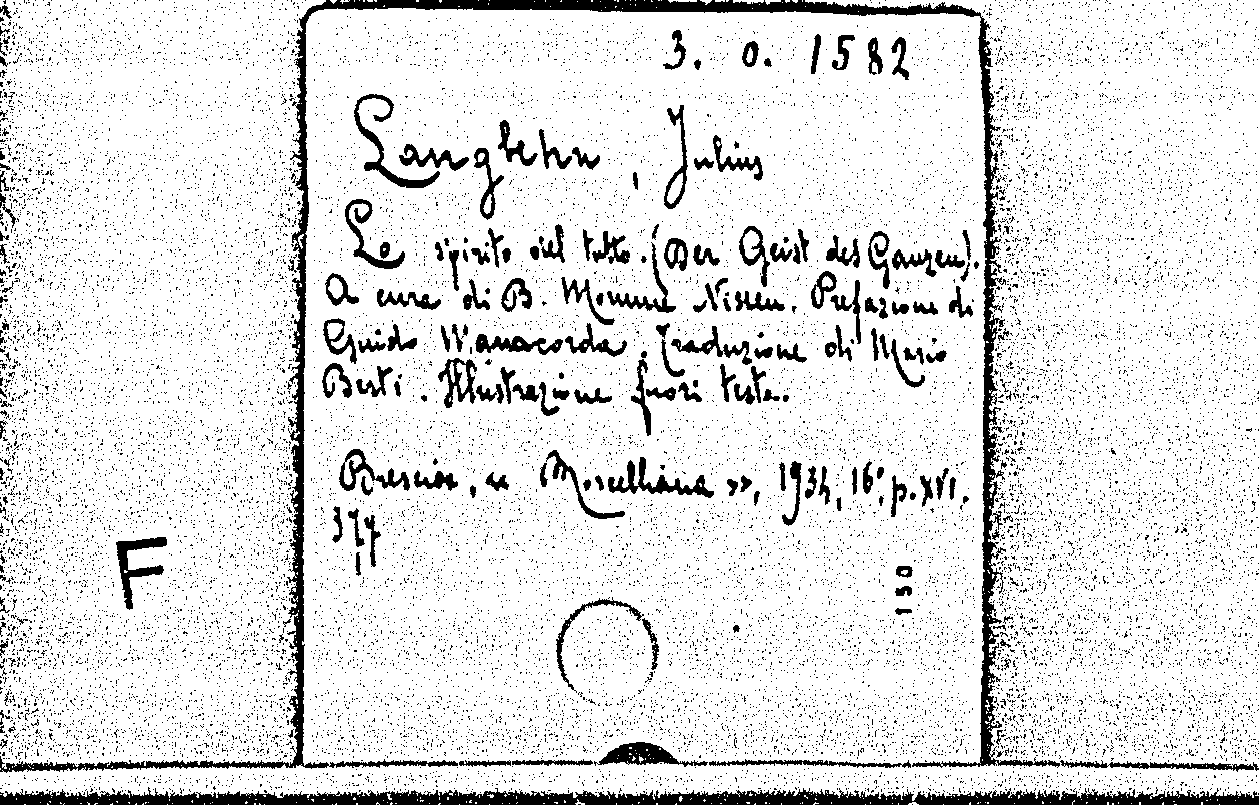 3. 0. 1582
Langbehn, Julius
Lo spirito del tutto. (Der Geist des Ganzen).
A cura di B. Momme Nissen. Prefazione di
Guido Manacorda. Traduzione di Mario
Besti. Illustrazione fuori testo.
Brescia, « Morcelliana », 1934, 16°, p. XVI.
377
F
150